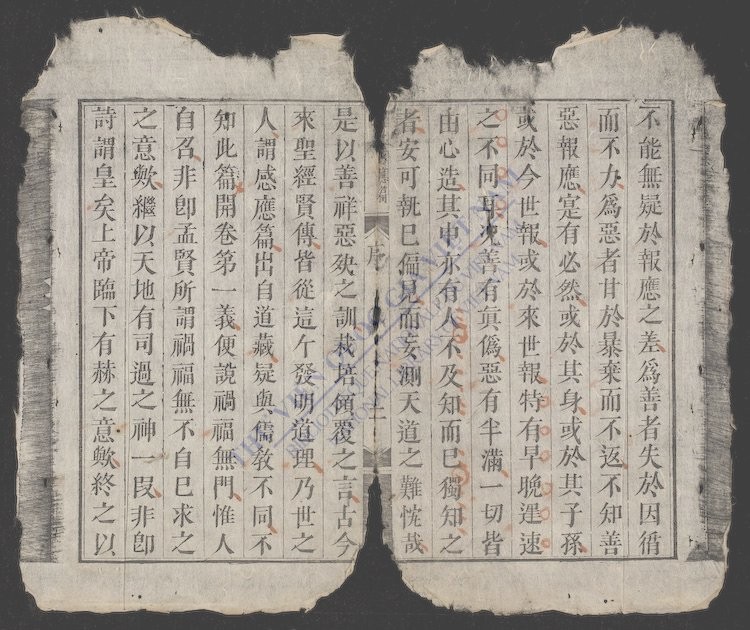 不能無疑於報應之差爲善者失於因循
而不力爲惡者甘於暴棄而不返不知善
惡報應寔有必然或於其身或於其子孫
或於今世報或於來世報特有早晚遲速
之不同耳况善有真僞惡有半滿一切皆
由心造其中亦有人不及知而已獨知之
者安可執已偏見而妄測天道之難忱哉
序
二
是以善祥惡殃之訓栽培傾覆之言古今
來聖經賢傳皆從這个發明道理乃世之
人謂感應篇出自道藏疑與儒教不同不
知此篇開卷第一義便說禍福無門惟人
自召非卽孟賢所謂禍福無不自已求之
之意歟繼以天地有司過之神一段非卽
詩謂皇矣上帝臨下有赫之意歟終之以
THƯ VIỆN QUỐC GIA VIỆT NAM